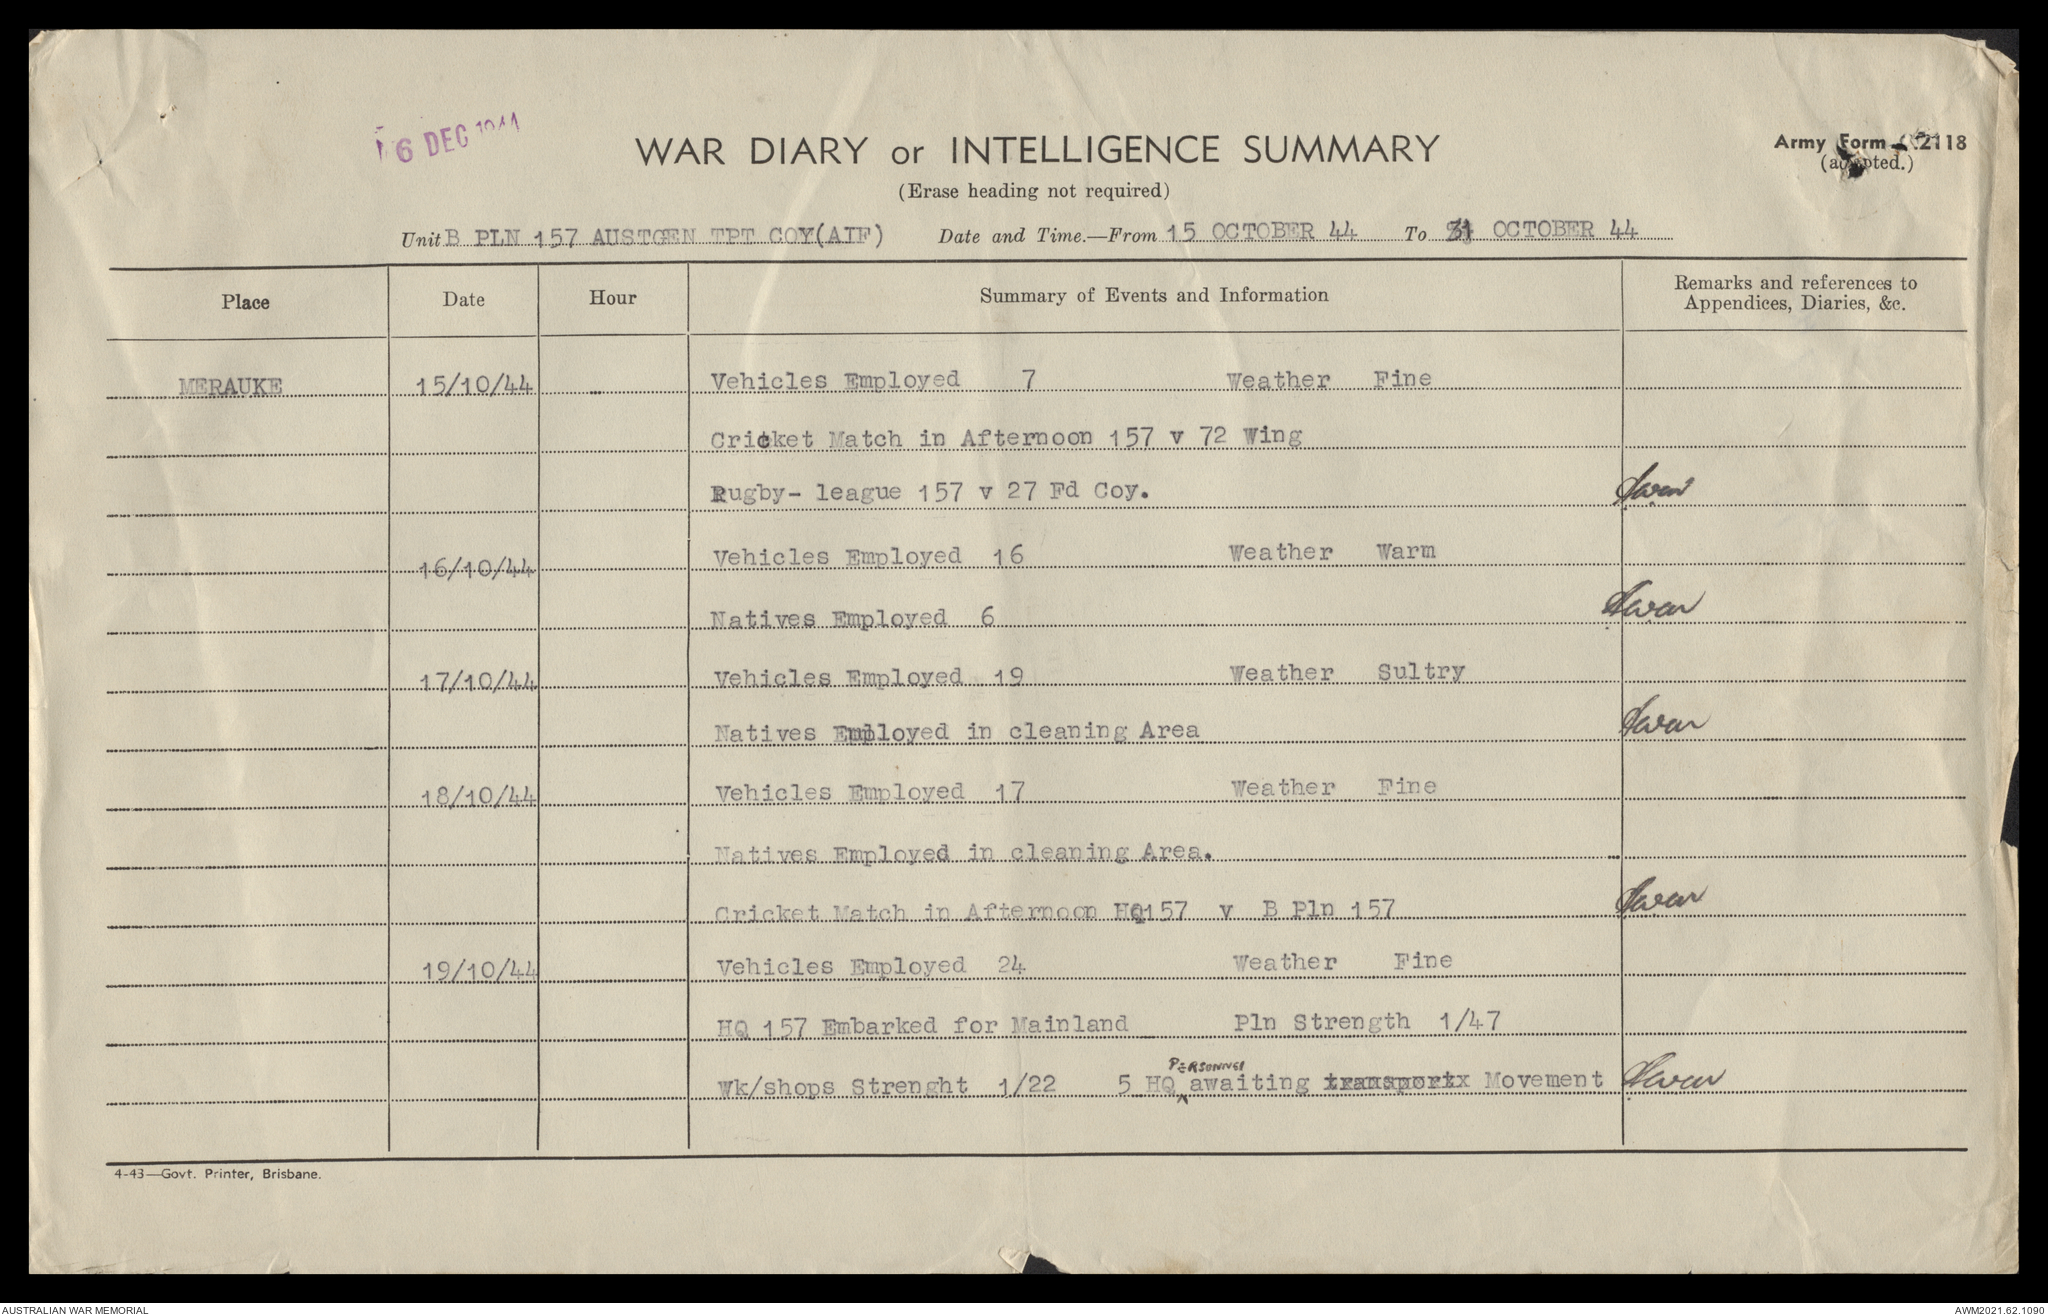 6 DEC 1944
WAR DIARY or INTELLIGENCE SUMMARY
Army Form 2118
(adapted.)
(Erase heading not required)
Unit B PLN 157 AUSTGEN TPT COY(AIF) Date and Time.—From 15 OCTOBER 44 To 31 OCTOBER 44
Place Date Hour Summary of Events and Information Remarks and references to
Appendices, Diaries, &c.
MERAUKE 15/10/44 Vehicles Employed 7 Weather Fine
Cricket Match in Afternoon 157 v 72 Wing
Rugby- league 157 v 27 Fd Coy.
16/10/44 Vehicles Employed 16 Weather Warm
Natives Employed 6
17/10/44 Vehicles Employed 19 Weather Sultry
Natives Employed in cleaning Area
18/10/44 Vehicles Employed 17 Weather Fine
Natives Employed in cleaning Area.
Cricket Match in Afternoon HQ157 v B Pln 157
19/10/44 Vehicles Employed 24 Weather Fine
HQ 157 Embarked for Mainland Pln Strength 1/47
PERSONNEL
Wk/shops Strenght 1/22 5 HQ awaiting transportx Movement
4-43—Govt. Printer, Brisbane.
AUSTRALIAN WAR MEMORIAL
AWM2021.62.1090